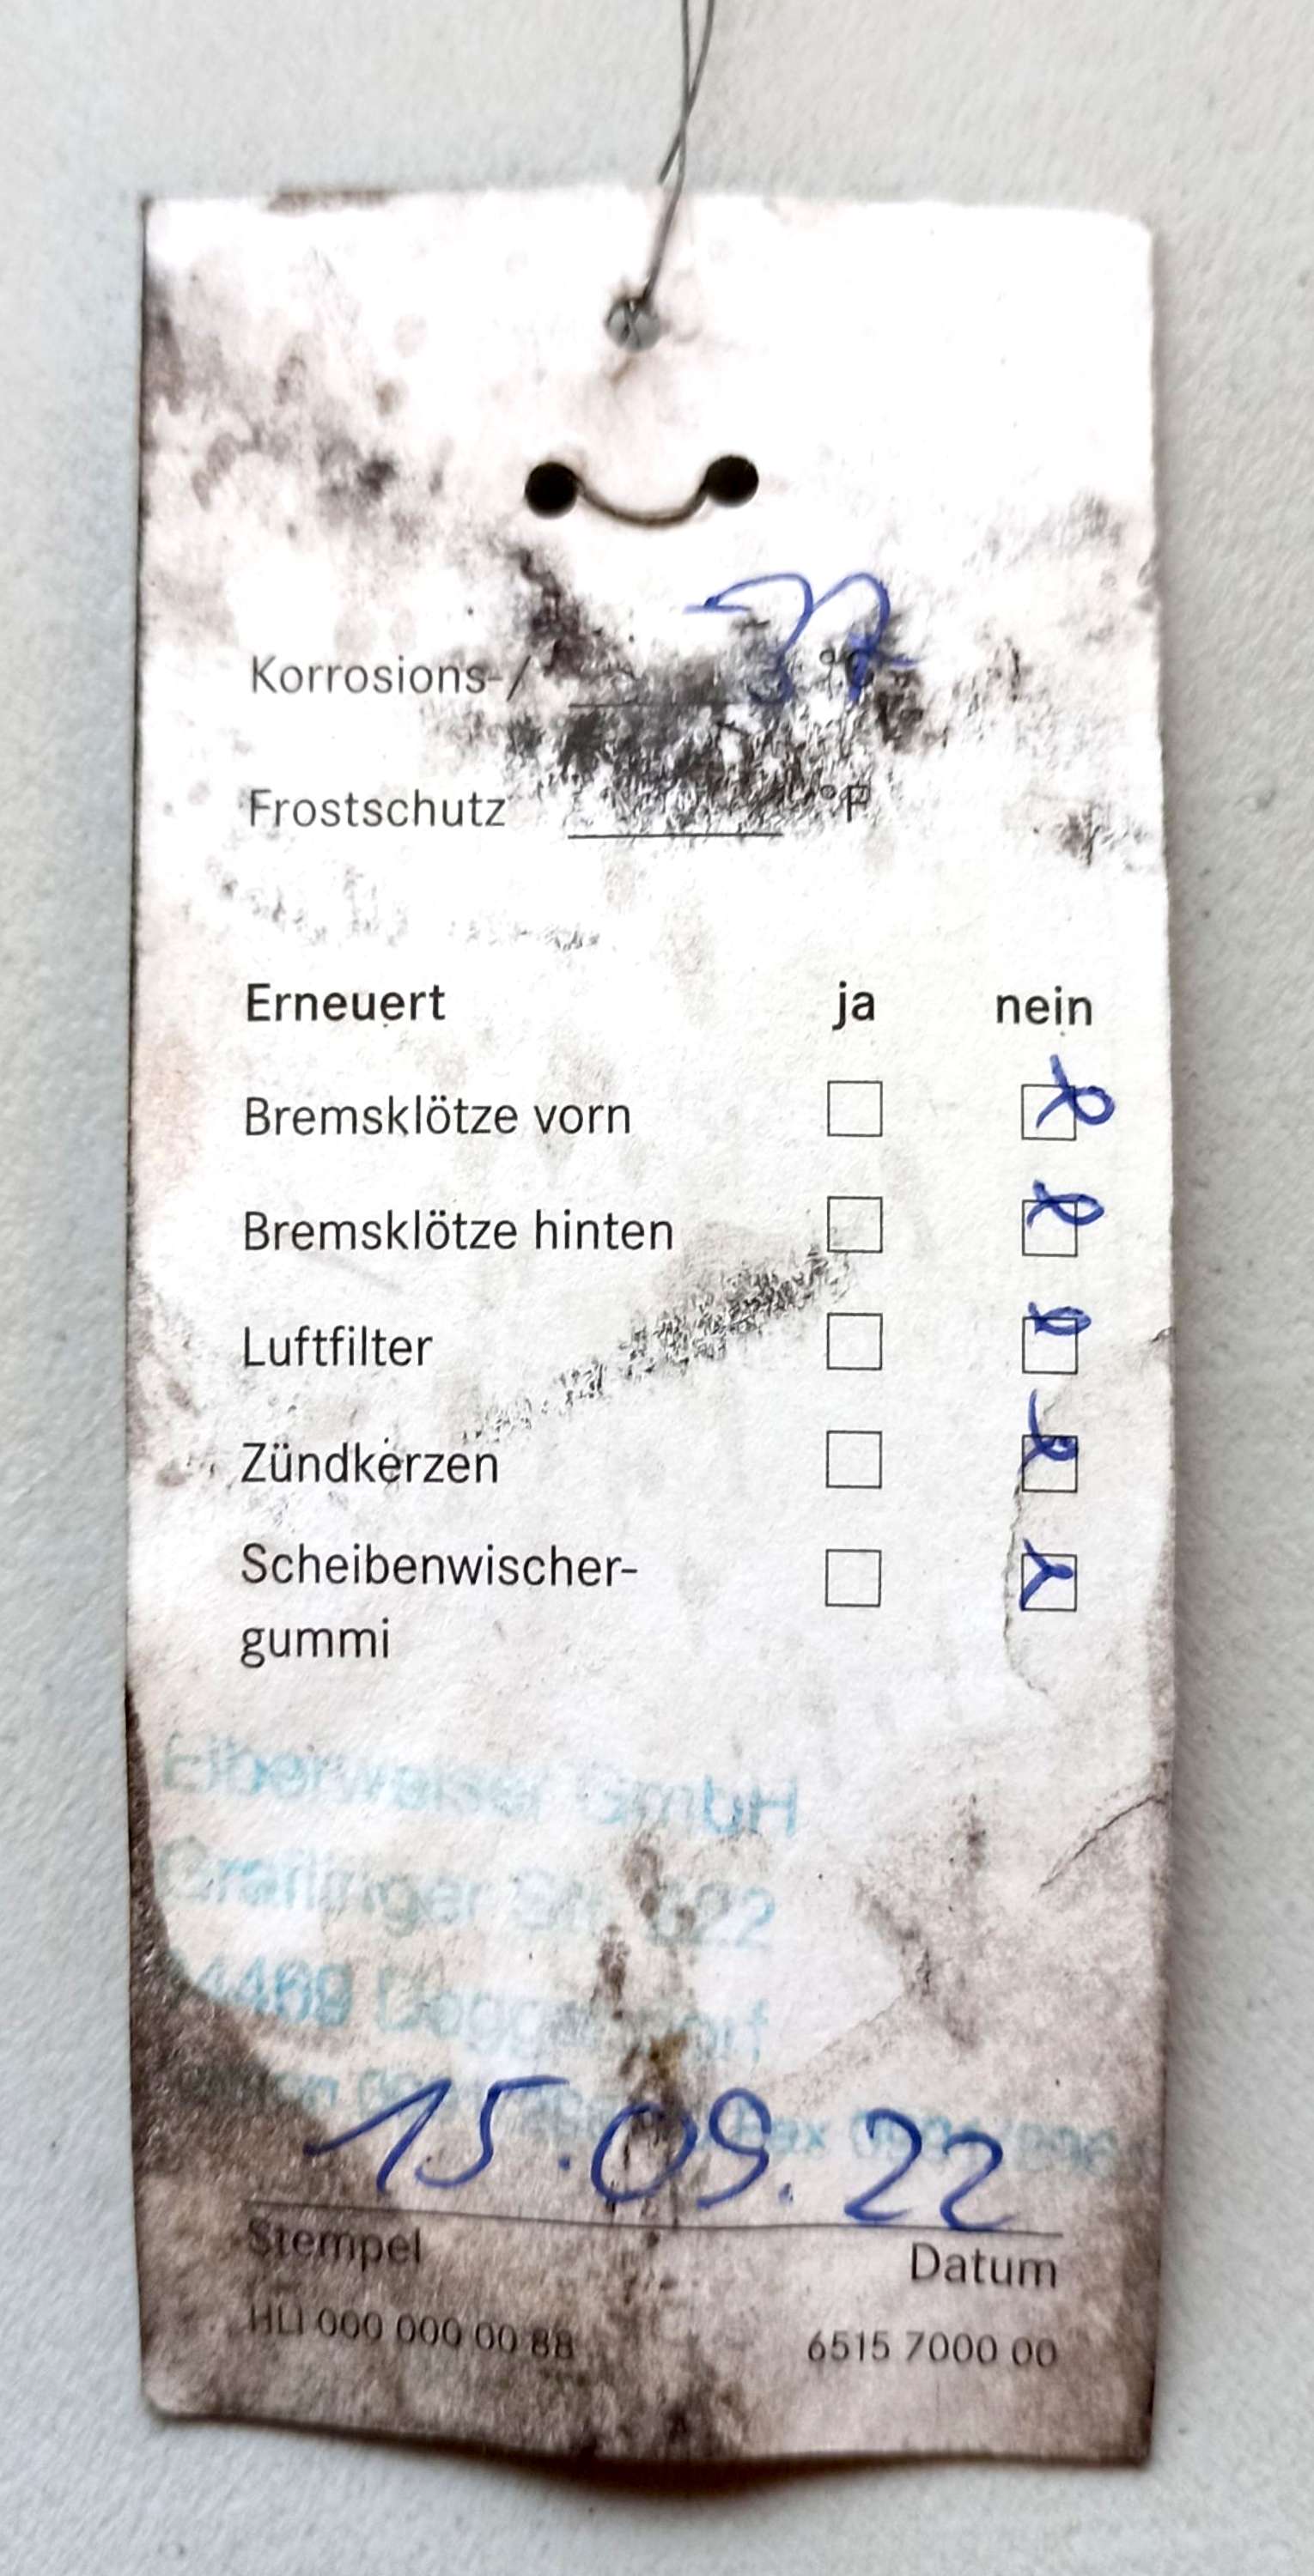 37 °C
Korrosions-/
Frostschutz °F
Erneuert ja nein
Bremsklötze vorn
Bremsklötze hinten
Luftfilter
Zündkerzen
Scheibenwischer-
gummi
Eiberweiser GmbH
Graflinger Str. 222
94469 Deggendorf
Fax
15.09.22
Stempel Datum
HLI 000 000 00 88 6515 7000 00